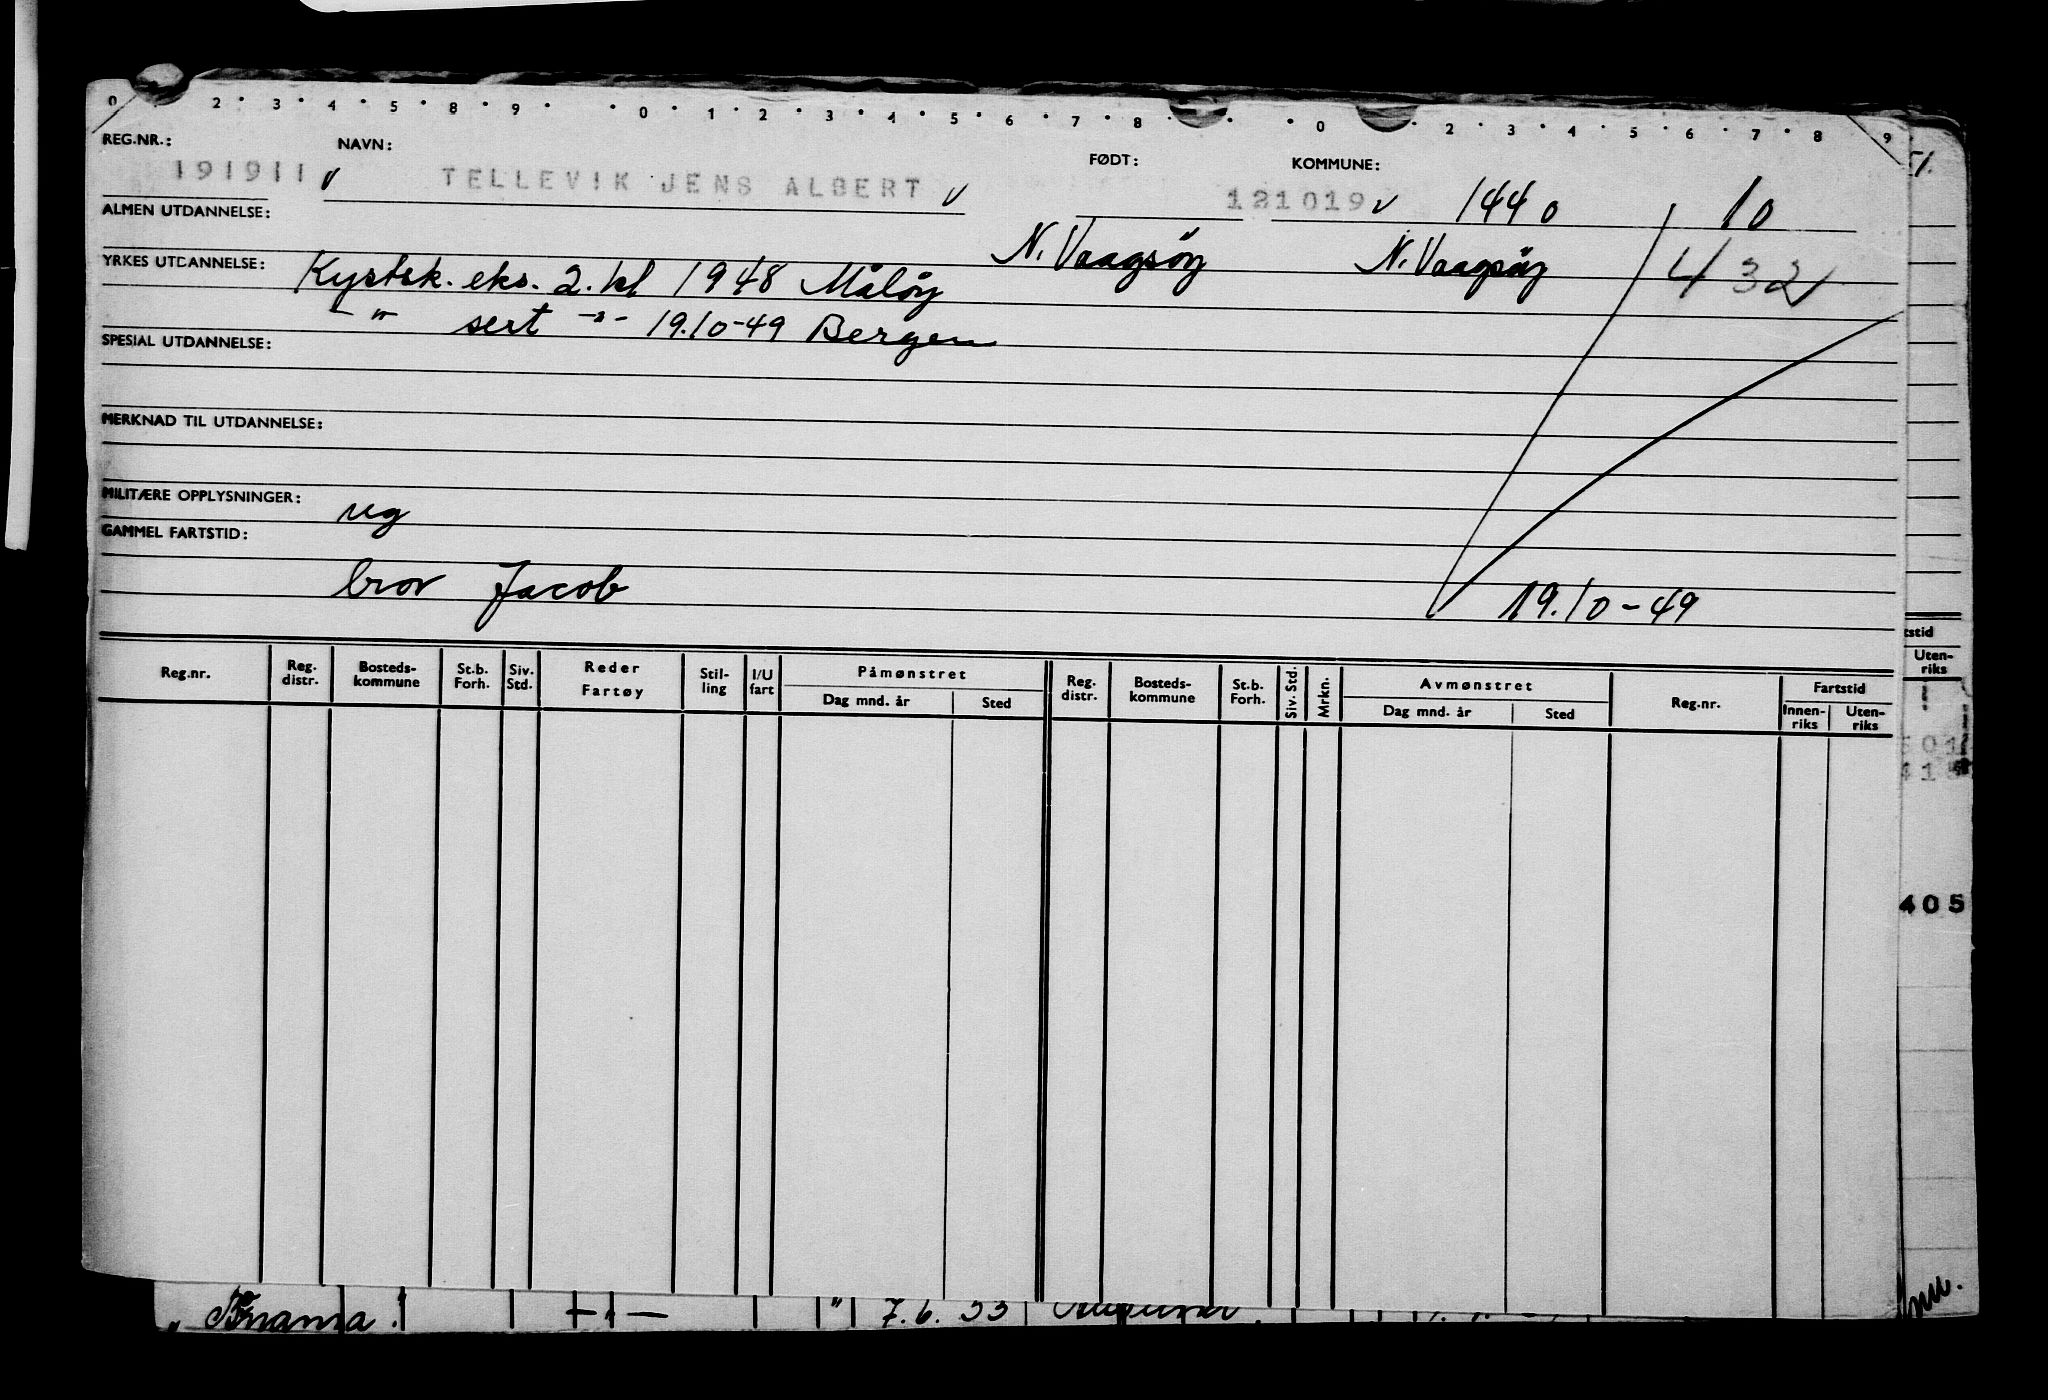 0 2 · 3 · 4 · 5 · 8 · 9 · · 0 · 1 · 2 · 3 · 4 · 5 · 6 · 7 · 8 · · · 0 · 2 · 3 · 4 · 5 · 6 · 7 · 8 · 9
REG.NR.: NAVN: FØDT: KOMMUNE:
191911 v TELLEVIK JENS ALBERT v 121019 v 1440 10
ALMEN UTDANNELSE:
N. Vaagsöy N. Vaagsöy 432
YRKES UTDANNELSE: Kystsk. eks. 2. kl 1948 Måløy
-"- sert -"- 19.10-49 Bergen
SPESIAL UTDANNELSE:
MERKNAD TIL UTDANNELSE:
MILITÆRE OPPLYSNINGER: ug
GAMMEL FARTSTID:
bror Jacob 19.10-49
Reg.nr. Reg. distr. Bosteds-kommune St.b. Forh. Siv. Std. Reder Fartøy Stil-ling I/U fart Påmønstret Reg. distr. Bosteds-kommune St.b. Forh. Siv. Std. Mrkn. Avmønstret Reg.nr. Fartstid
Dag mnd. år Sted Dag mnd. år Sted Innen-riks Uten-riks
51.
tstid
Uten-riks
501
415
405
7.6.53